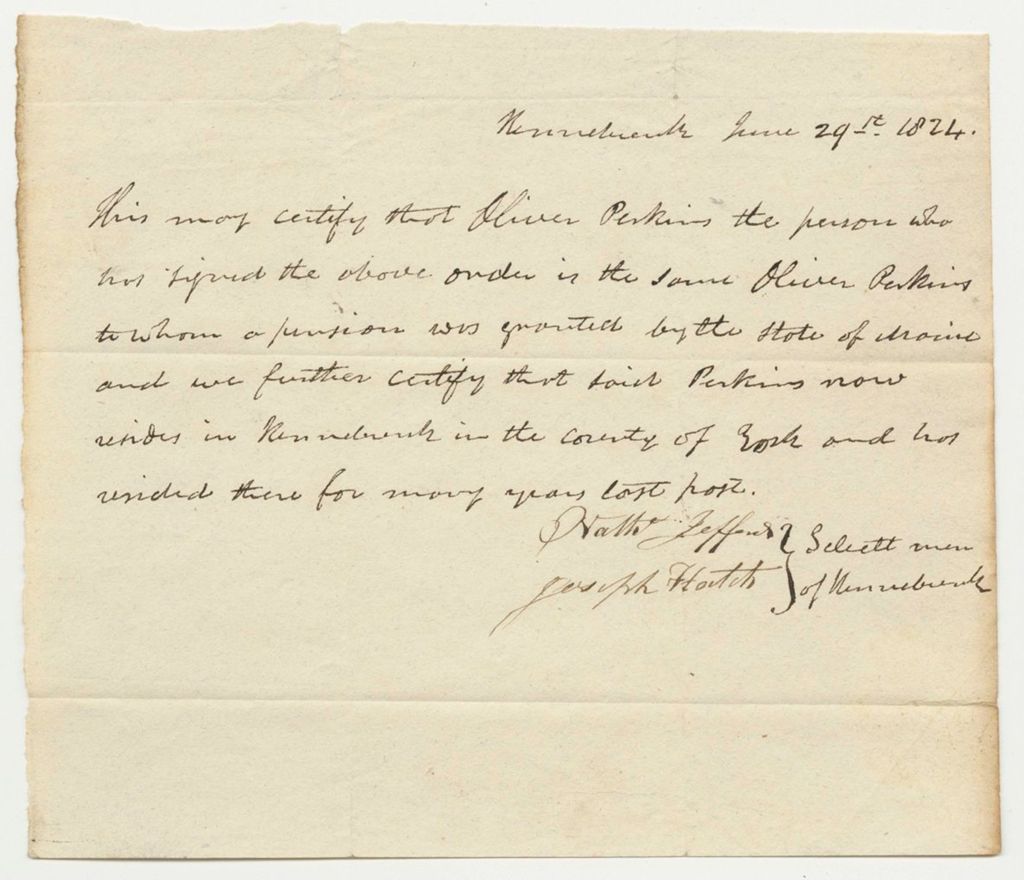 Kennebunk June 29st. 1824.
This may certify that Oliver Perkins the person who
has signed the above order is the same Oliver Perkins
to whom a pension was granted by the State of Maine
and we further certify that said Perkins now
resides in Kennebunk in the county of York and has
resided there for many years last past.
Nathl Jefferds } Selectt men
Joseph Hatch } of Kennebunk